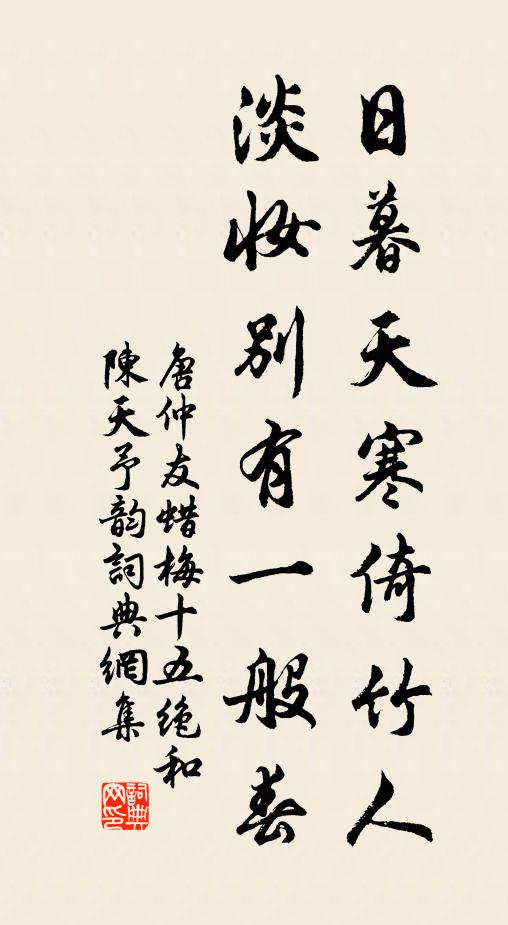 日暮天寒倚竹人
淡妝别有一般春
唐仲友蜡梅十五絶和
陳天予韵詞典網集
詞典
网印